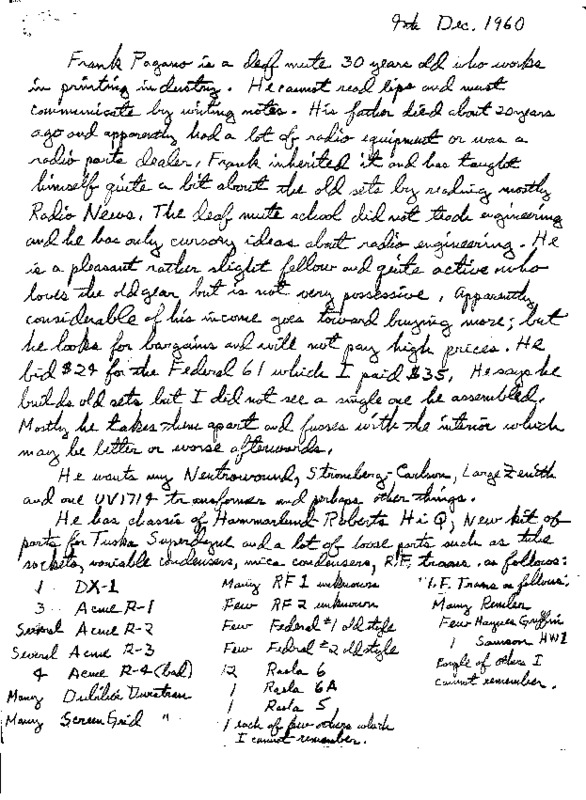 9th Dec. 1960
Frank Pagano is a deaf mute 30 years old who works
in printing industry. He cannot read lips and must
communicate by writing notes. His father died about 20 years
ago and apparently had a lot of radio equipment or was a
radio parts dealer, Frank inherited it and has taught
himself quite a bit about the old sets by reading mostly
Radio News. The deaf mute school did not teach engineering
and he has only cursory ideas about radio engineering. He
is a pleasant rather slight fellow and quite active who
loves the old gear but is not very possessive, Apparently
considerable of his income goes toward buying more; but
he looks for bargains and will not pay high prices. He
bid $24 for the Federal 61 which I paid $35. He says he
builds old sets but I did not see a single one he assembled.
Mostly he takes them apart and fusses with the interior which
may be better or worse afterwards.
He wants my Neutrowound, Stromberg-Carlson, Large Zenith
and one UV1714 transformer and perhaps other things.
He has chassis of Hammarlund Roberts Hi Q, New kit of
parts for Tuska Superdyne and a lot of loose parts such as
sockets, variable condensers, mica condensers, R.F. trans. as follows:
1 DX-1 Many RF 1 unknown "I.F. Trans as follows:
3 Acme R-1 Few RF 2 unknown Many Remler
Several Acme R-2 Few Federal #1 old style Few Haynes Griffin
Several Acme R-3 Few Federal #2 old style 1 Samson HW1
4 Acme R-4 (bad) 12 Rasla 6 Couple of others I
Many Dubilier Duratran 1 Rasla 6A cannot remember.
1 Rasla 5
Many Screen Grid " 1 each of few others which
I cannot remember.